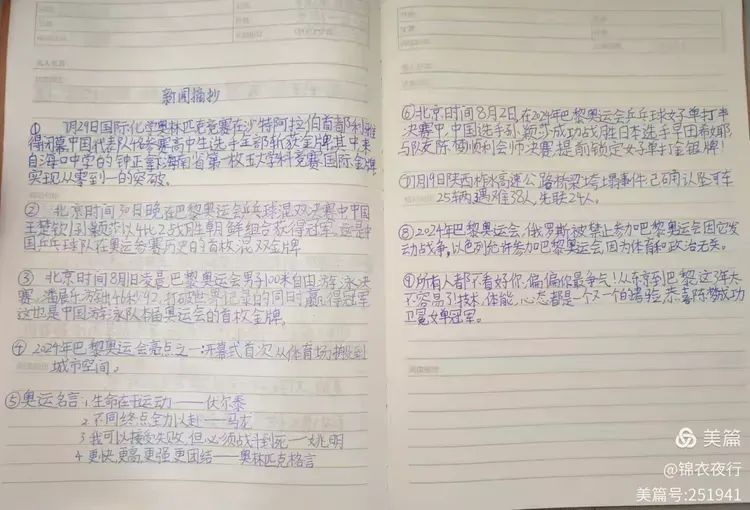 新闻摘抄
① 7月29日国际化学奥林匹克竞赛在沙特阿拉伯首都利雅
得闭幕,中国代表队4名参赛高中生选手全部斩获金牌,其中来
自海口中学的钟正
海南省第一枚五大学科竞赛国际金牌
实现从零到一的突破。
② 北京时间30日晚在巴黎奥运会乒乓球混双决赛中中国
王楚钦/孙颖莎以4比2战胜朝鲜组合获得冠军,这是中
国乒乓球队在奥运会赛历史的首枚混双金牌
③ 北京时间8月1日凌晨巴黎奥运会男子100米自由游泳决
赛,潘展乐游出46秒40,打破世界记录的同时赢得冠军
这也是中国游泳队本届奥运会的首枚金牌。
④ 2024年巴黎奥运会亮点之一:开幕式首次从体育场搬到
城市空间。
⑤奥运名言:1,生命在于运动——伏尔泰
2.不同终点全力以赴——马龙
3.我可以接受失败,但必须战斗到死—姚明
4.更快,更高,更强,更团结——奥林匹克格言
⑥北京时间8月2日,在2024年巴黎奥运会乒乓球女子单打半
决赛中,中国选手孙颖莎成功战胜日本选手早田希娜
与队友陈梦顺利会师决赛,提前锁定女子单打金银牌!
⑦7月19日陕西柞水高速公路桥梁垮塌事件,已确认坠河车
25辆,遇难38人,失联24人。
⑧2024年巴黎奥运会,俄罗斯被禁止参加巴黎奥运会因它发
动战争,以色列允许参加巴黎奥运会,因为体育和政治无关。
⑨所有人都不看好你,偏偏你最争气!从东京到巴黎这3年太
不容易了,技术、体能、心态都是一个又一个的考验,恭喜陈梦成功
卫冕女单冠军。
美篇
@锦衣夜行
美篇号:251941